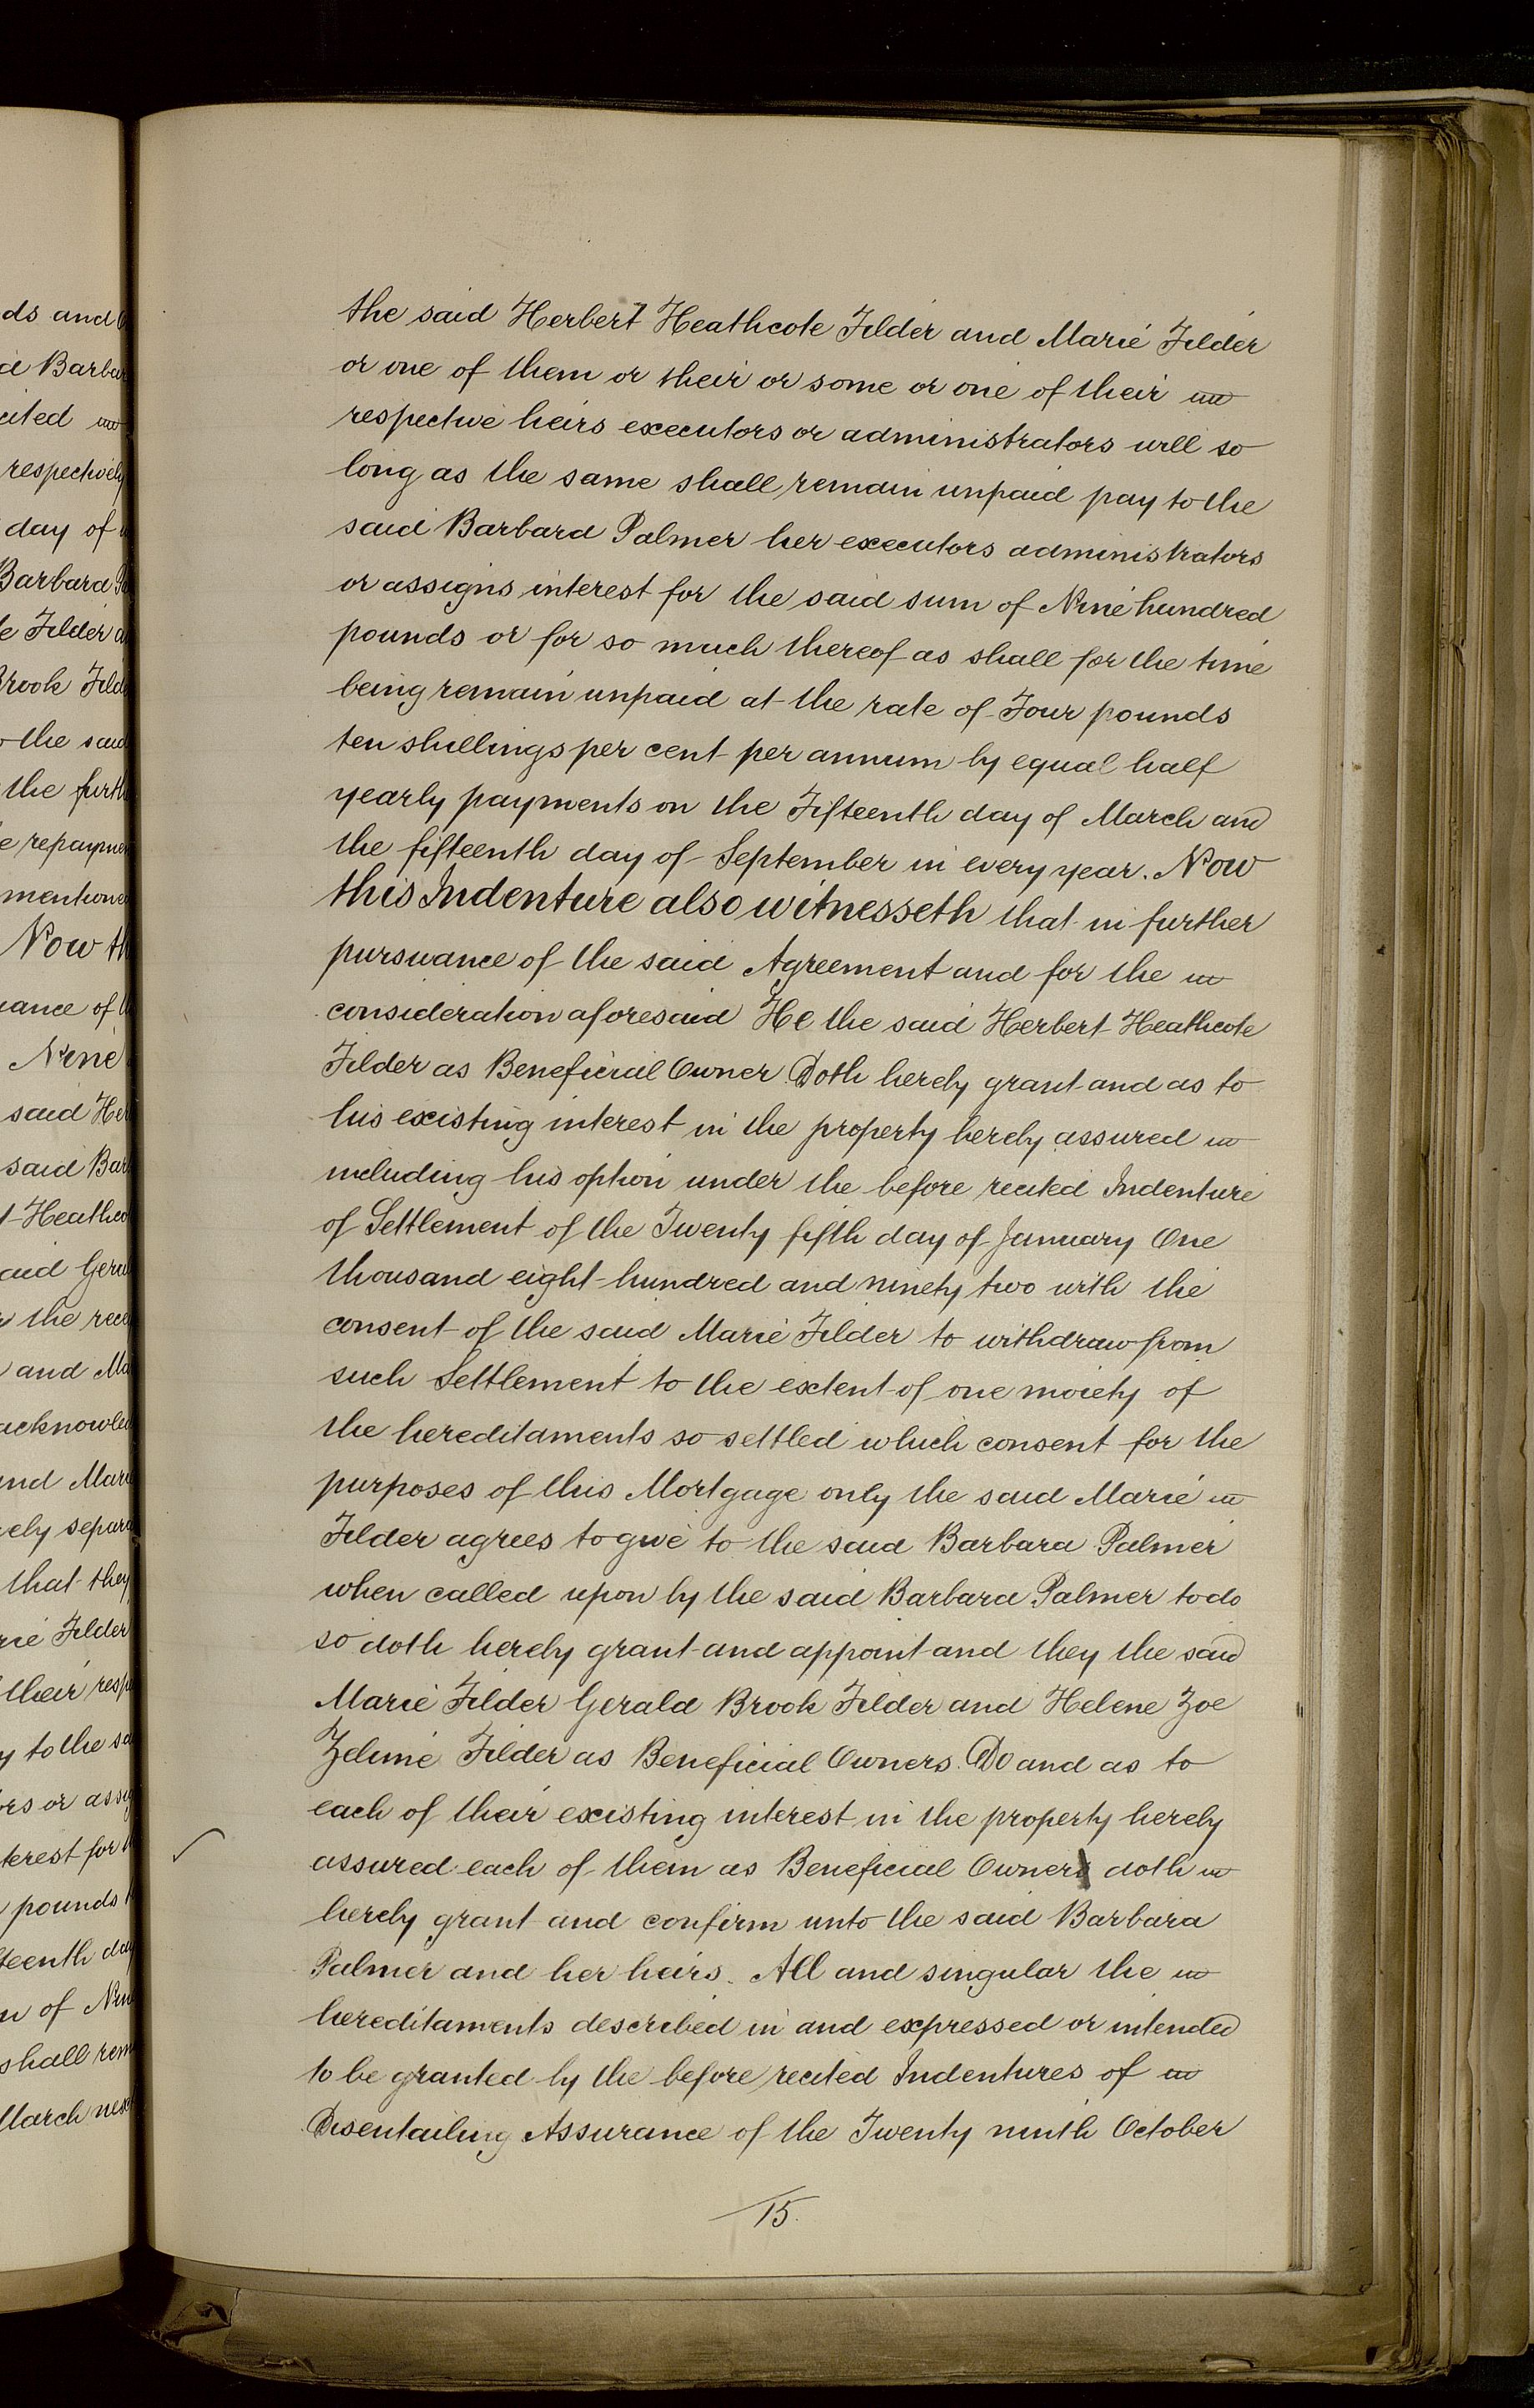 ds and
Barbar
cited
respectively
day of
Barbara
Filder
Brook
the said
the furth
repaymen
mentione
Now th
ance of
Nine
said Her
said Bar
Heathco
said Geral
the rece
and Ma
acknowled
and Mari
ely separa
that they
Filder
their resp
to the sa
ors or assig
terest for
pounds
fteenth day
of Nin
shall rem
March nex
the said Herbert Heathcote Filder and Marie Filder
or one of them or their or some or one of their
respective heirs executors or administrators will so
long as the same shall remain unpaid pay to the
said Barbara Palmer her executors administrators
or assigns interest for the said sum of Nine hundred
pounds or for so much thereof as shall for the time
being remain unpaid at the rate of Four pounds
ten shillings per cent per annum by equal half
yearly payments on the Fifteenth day of March and
the fifteenth day of September in every year. Now
this Indenture also witnesseth that in further
pursuance of the said Agreement and for the
consideration aforesaid He the said Herbert Heathcote
Filder as Beneficial Owner Doth hereby grant and as to
his existing interest in the property hereby assured
including his option under the before recited Indenture
of Settlement of the Twenty fifth day of January One
thousand eight hundred and ninety two with the
consent of the said Marie Filder to withdraw from
such Settlement to the extent of one moiety of
the hereditaments so settled which consent for the
purposes of this Mortgage only the said Marie
Filder agrees to give to the said Barbara Palmer
when called upon by the said Barbara Palmer to do
so doth hereby grant and appoint and they the said
Marie Filder Gerald Brook Filder and Helene Zoe
Zelime Filder as Beneficial Owners Do and as to
each of their existing interest in the property hereby
assured each of them as Beneficial Owner doth
hereby grant and confirm unto the said Barbara
Palmer and her heirs. All and singular the
hereditaments described in and expressed or intended
to be granted by the before recited Indentures of
Disentailing Assurance of the Twenty ninth October
15.